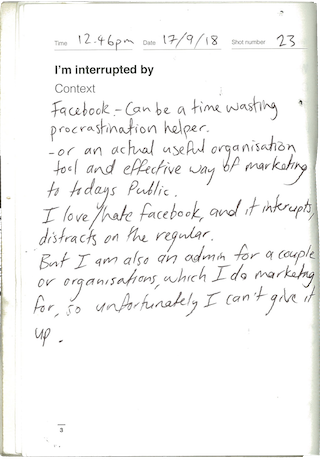 Time 12.46pm Date 17/9/18 Shot number 23
I'm interrupted by
Context
Facebook - Can be a time wasting
procrastination helper.
-or an actual useful organisation
tool and effective way of marketing
to todays Public.
I love/hate facebook, and it interupts,
distracts on the regular.
But I am also an admin for a couple
or organisations, which I do marketing
for, so unfortunately I can't give it
up.
3